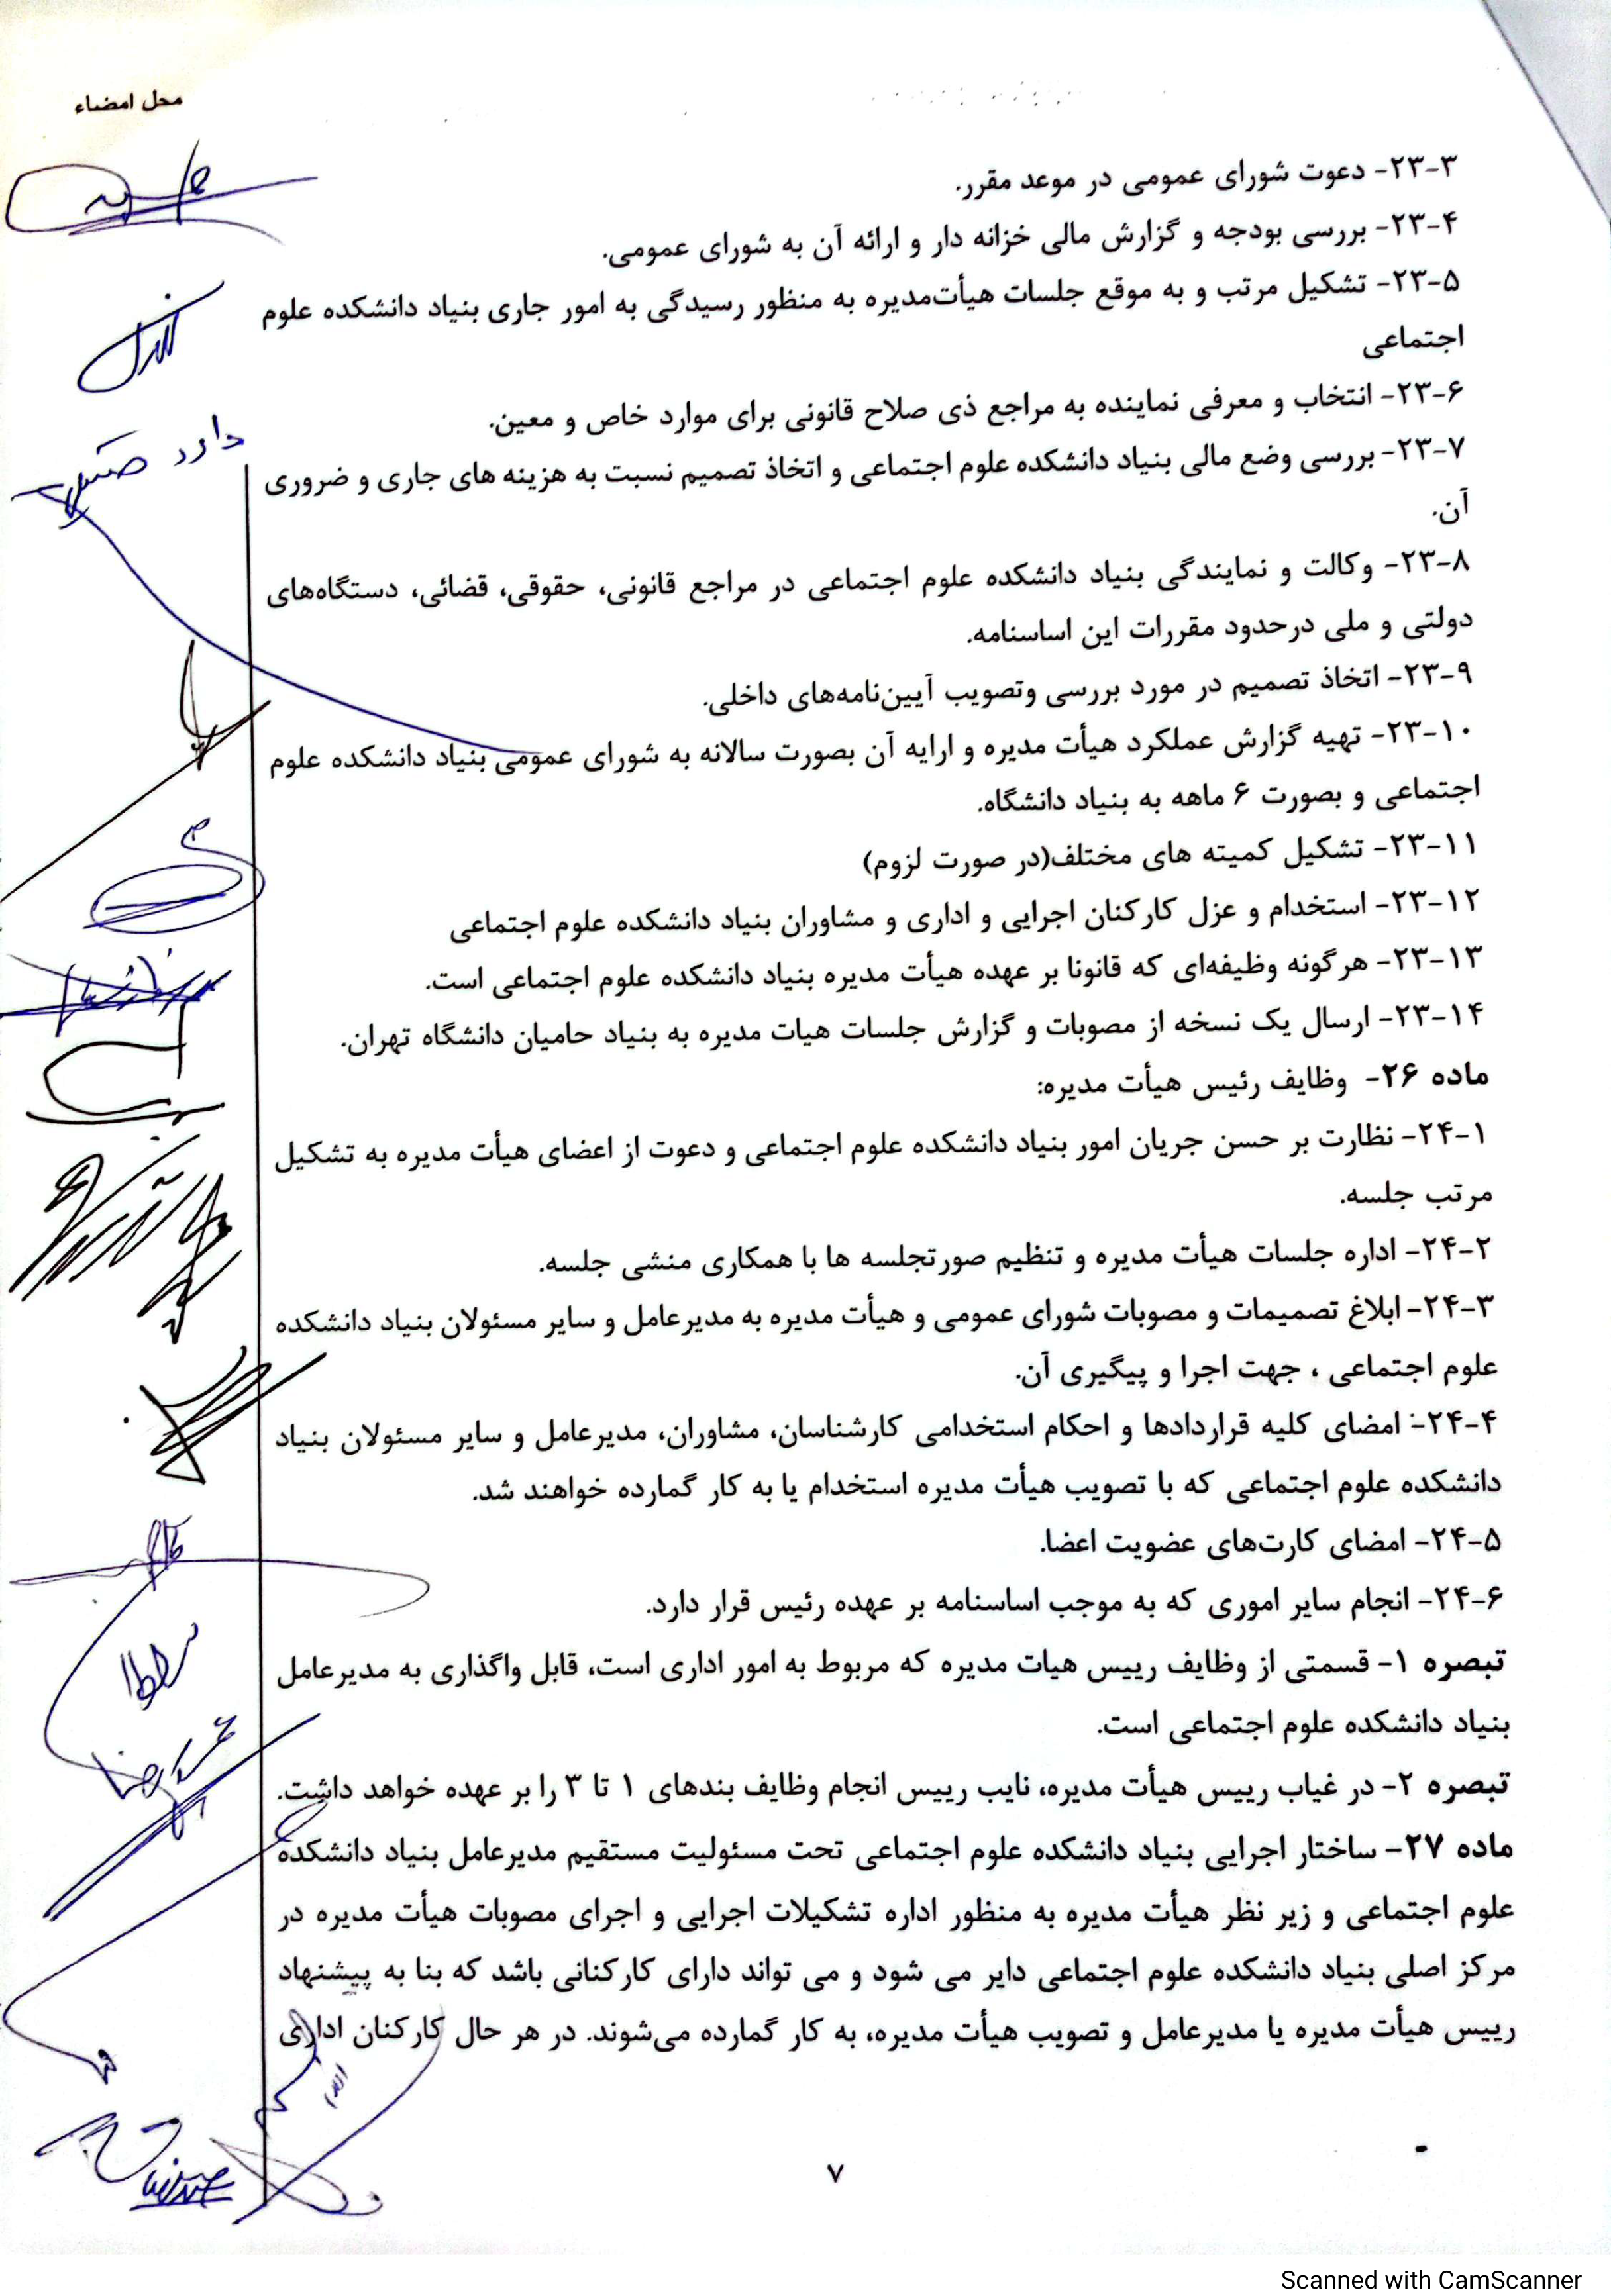 محل امضاء
۲۳-۳- دعوت شورای عمومی در موعد مقرر.
۲۳-۴- بررسی بودجه و گزارش مالی خزانه دار و ارائه آن به شورای عمومی.
۲۳-۵- تشکیل مرتب و به موقع جلسات هیأت‌مدیره به منظور رسیدگی به امور جاری بنیاد دانشکده علوم
اجتماعی
۲۳-۶- انتخاب و معرفی نماینده به مراجع ذی صلاح قانونی برای موارد خاص و معین.
۲۳-۷- بررسی وضع مالی بنیاد دانشکده علوم اجتماعی و اتخاذ تصمیم نسبت به هزینه های جاری و ضروری
آن.
۲۳-۸- وکالت و نمایندگی بنیاد دانشکده علوم اجتماعی در مراجع قانونی، حقوقی، قضائی، دستگاه‌های
دولتی و ملی درحدود مقررات این اساسنامه.
۲۳-۹- اتخاذ تصمیم در مورد بررسی وتصویب آیین‌نامه‌های داخلی.
۲۳-۱۰- تهیه گزارش عملکرد هیأت مدیره و ارایه آن بصورت سالانه به شورای عمومی بنیاد دانشکده علوم
اجتماعی و بصورت ۶ ماهه به بنیاد دانشگاه.
۲۳-۱۱- تشکیل کمیته های مختلف(در صورت لزوم)
۲۳-۱۲- استخدام و عزل کارکنان اجرایی و اداری و مشاوران بنیاد دانشکده علوم اجتماعی
۲۳-۱۳- هرگونه وظیفه‌ای که قانونا بر عهده هیأت مدیره بنیاد دانشکده علوم اجتماعی است.
۲۳-۱۴- ارسال یک نسخه از مصوبات و گزارش جلسات هیات مدیره به بنیاد حامیان دانشگاه تهران.
ماده ۲۶- وظایف رئیس هیأت مدیره:
۲۴-۱- نظارت بر حسن جریان امور بنیاد دانشکده علوم اجتماعی و دعوت از اعضای هیأت مدیره به تشکیل
مرتب جلسه.
۲۴-۲- اداره جلسات هیأت مدیره و تنظیم صورتجلسه ها با همکاری منشی جلسه.
۲۴-۳- ابلاغ تصمیمات و مصوبات شورای عمومی و هیأت مدیره به مدیرعامل و سایر مسئولان بنیاد دانشکده
علوم اجتماعی ، جهت اجرا و پیگیری آن.
۲۴-۴- امضای کلیه قراردادها و احکام استخدامی کارشناسان، مشاوران، مدیرعامل و سایر مسئولان بنیاد
دانشکده علوم اجتماعی که با تصویب هیأت مدیره استخدام یا به کار گمارده خواهند شد.
۲۴-۵- امضای کارت‌های عضویت اعضا.
۲۴-۶- انجام سایر اموری که به موجب اساسنامه بر عهده رئیس قرار دارد.
تبصره ۱- قسمتی از وظایف رییس هیات مدیره که مربوط به امور اداری است، قابل واگذاری به مدیرعامل
بنیاد دانشکده علوم اجتماعی است.
تبصره ۲- در غیاب رییس هیأت مدیره، نایب رییس انجام وظایف بندهای ۱ تا ۳ را بر عهده خواهد داشت.
ماده ۲۷- ساختار اجرایی بنیاد دانشکده علوم اجتماعی تحت مسئولیت مستقیم مدیرعامل بنیاد دانشکده
علوم اجتماعی و زیر نظر هیأت مدیره به منظور اداره تشکیلات اجرایی و اجرای مصوبات هیأت مدیره در
مرکز اصلی بنیاد دانشکده علوم اجتماعی دایر می شود و می تواند دارای کارکنانی باشد که بنا به پیشنهاد
رییس هیأت مدیره یا مدیرعامل و تصویب هیأت مدیره، به کار گمارده می‌شوند. در هر حال کارکنان اداری
۷
Scanned with CamScanner